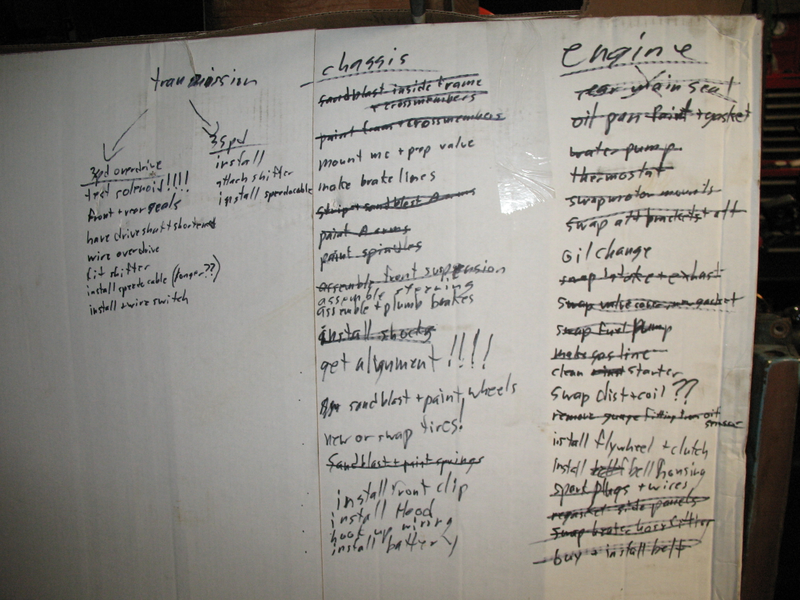 transmission
3spd overdrive
test solenoid!!!!
front + rear seals
have driveshaft shortened
wire overdrive
fit shifter
install speedo cable (longer??)
install + wire switch
3spd
install
attach shifter
install speedocable
chassis
sandblast inside frame
+ crossmembers
paint fram + crossmembers
mount mc + prop valve
make brake lines
strip + sandblast A arms
paint A arms
paint spindles
assemble front suspension
assemble steering
assemble + plumb brakes
install shocks
get alignment !!!!
sandblast + paint wheels
new or swap tires!
Sandblast + paint springs
install front clip
install Hood
hook up wiring
install battery
engine
rear main seal
oil pan paint + gasket
water pump
thermostat
swap motor mounts
swap alt brackets + alt
oil change
swap intake + exhast
swap valve cover gasket
swap fuel pump
make gas line
clean starter
swap dist + coil ??
remove guage fitting from oil
install flywheel + clutch
install bell housing
spark plugs + wires
regasket side panels
swap
buy + install belt